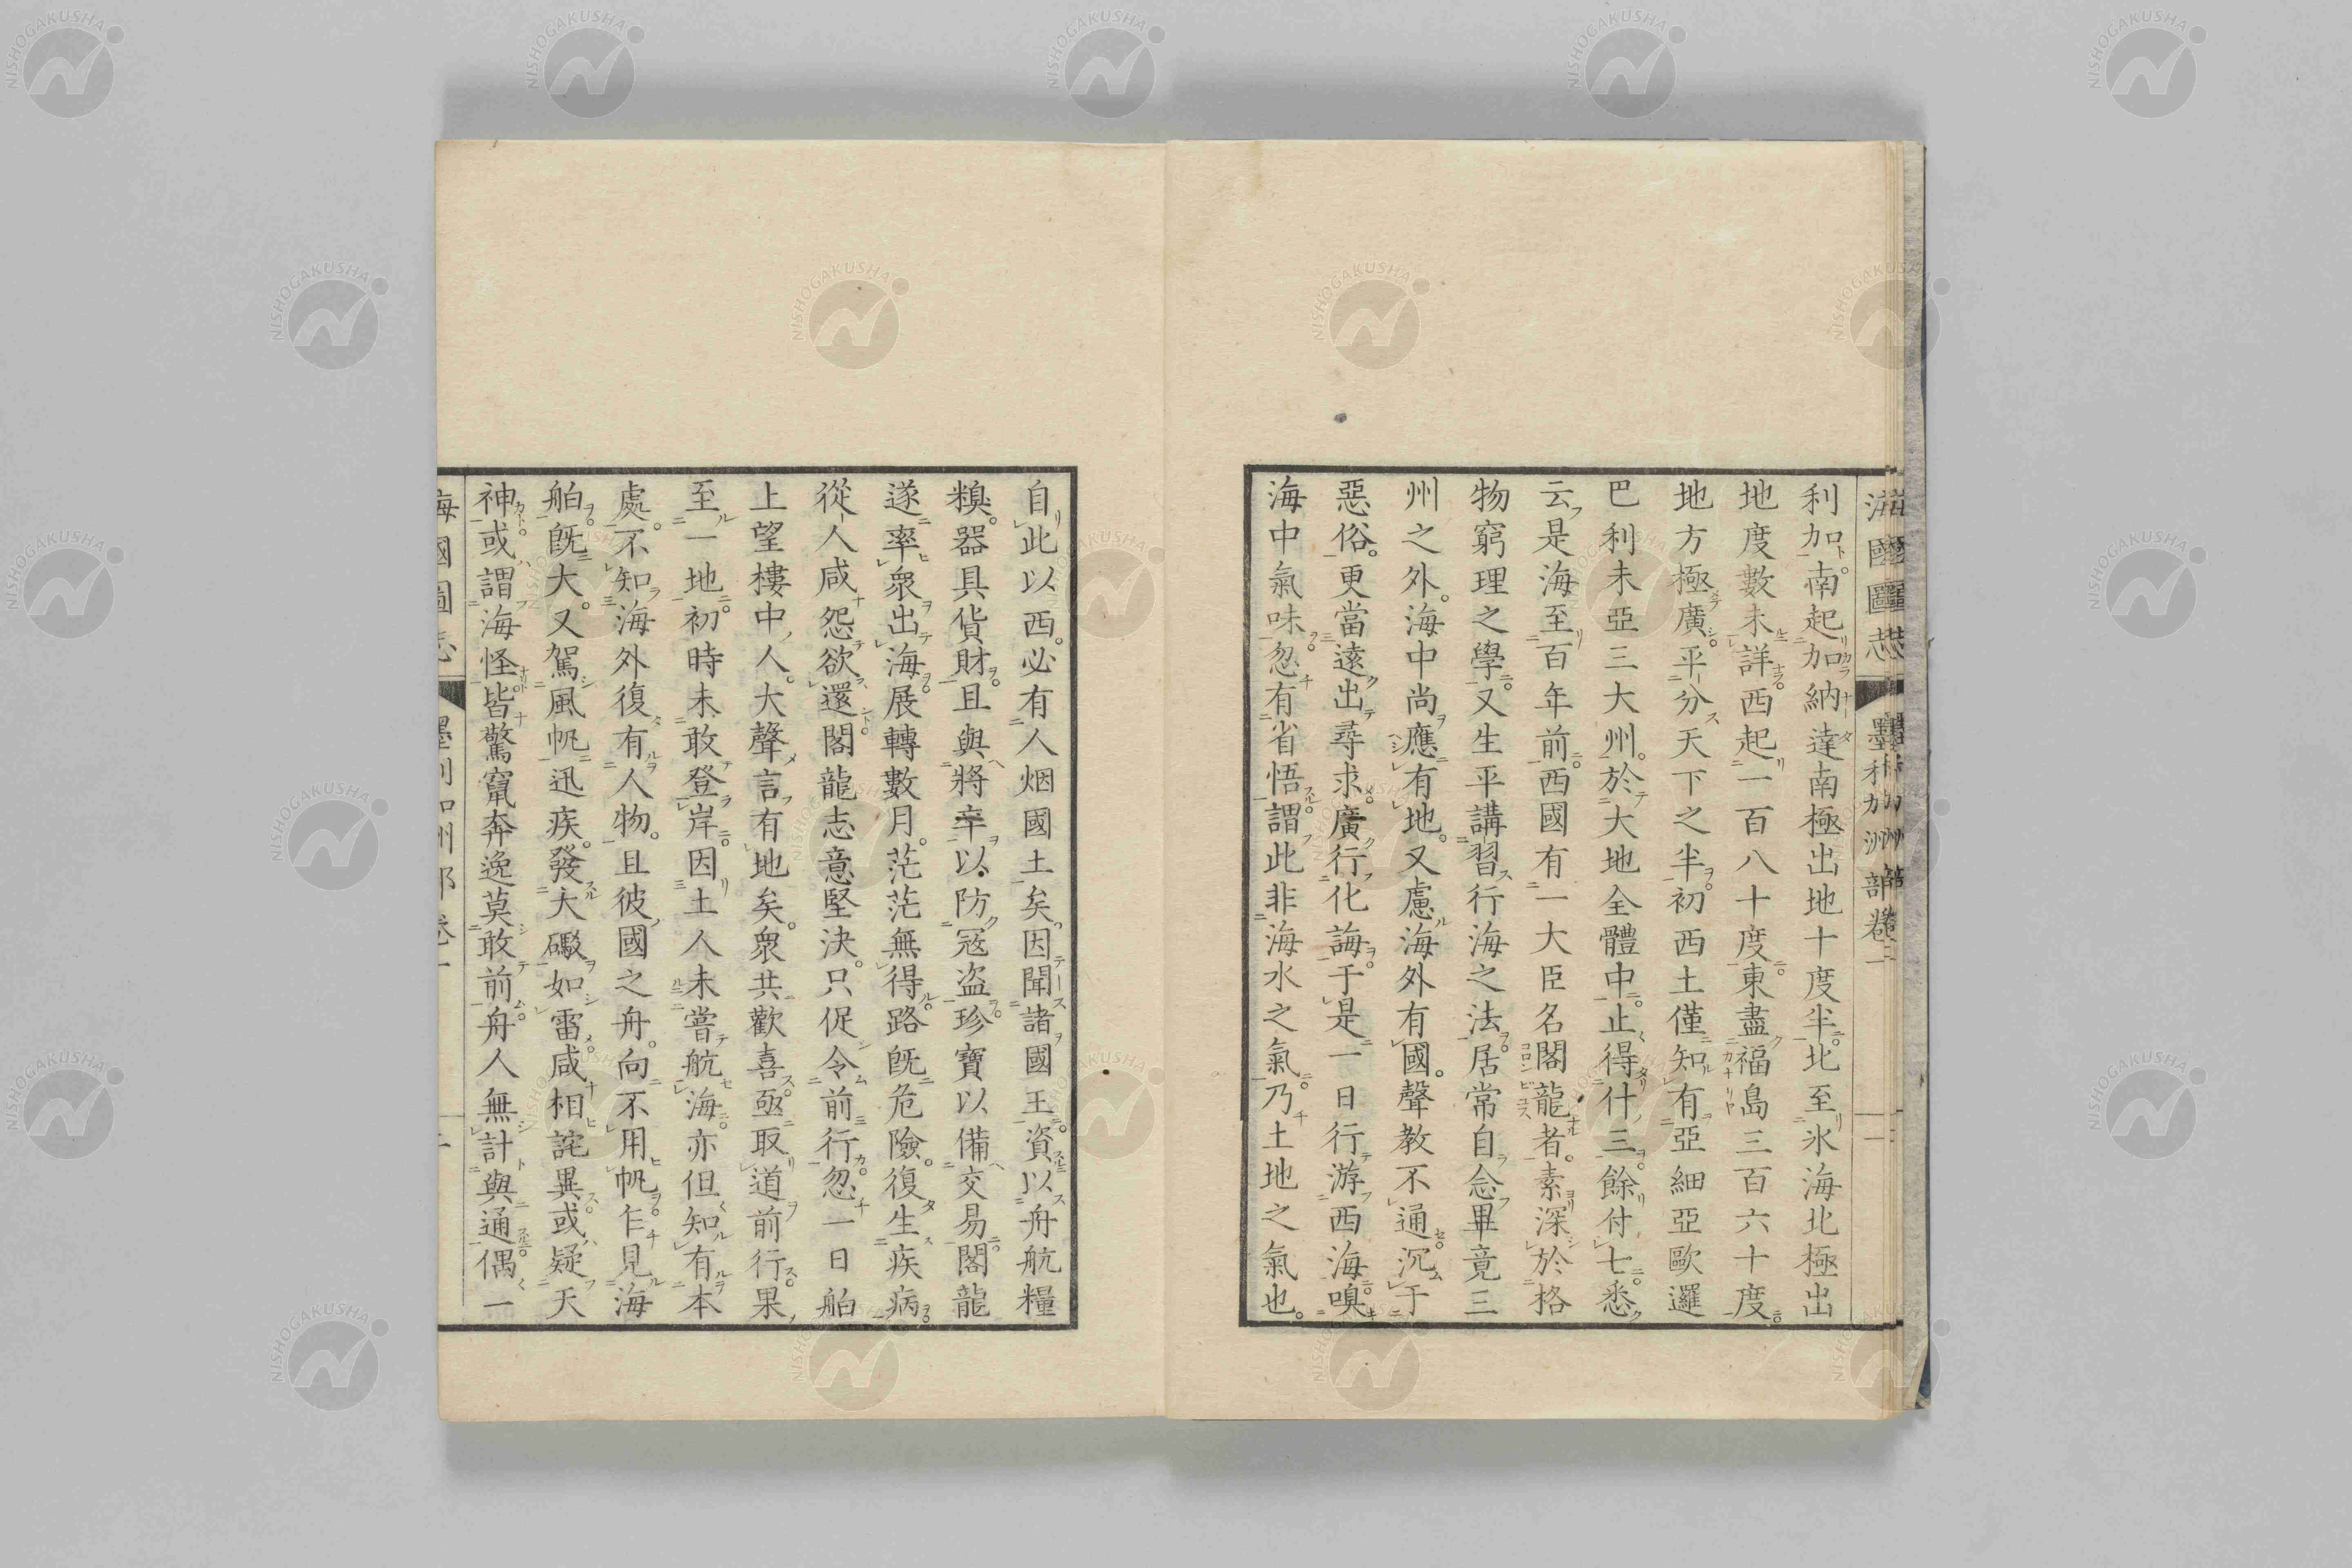 海國圖志 墨利加洲部卷一 一
利加南起加納達南極出地十度半北至氷海北極出
地度數未詳西起一百八十度東盡福島三百六十度
地方極廣平分天下之半初西土僅知有亞細亞歐邏
巴利未亞三大州於大地全體中止得什三餘付七悉
云是海至百年前西國有一大臣名閣龍者素深於格
物窮理之學又生平講習行海之法居常自念畢竟三
州之外海中尚應有地又慮海外有國聲教不通沉于
惡俗更當遠出尋求廣行化誨于是一日行游西海嗅
海中氣味忽有省悟謂此非海水之氣乃土地之氣也
自此以西必有人烟國土矣因聞諸國王資以舟航糧
糗器具貨財且與將卒以防冦盗珍寶以備交易閣龍
遂率衆出海展轉數月茫茫無得路既危險復生疾病
從人咸怨欲還閣龍志意堅決只促令前行忽一日舶
上望樓中人大聲言有地矣衆共歡喜亟取道前行果
至一地初時未敢登岸因土人未嘗航海亦但知有本
處不知海外復有人物且彼國之舟向不用帆乍見海
舶既大又駕風帆迅疾發大礮如雷咸相詫異或疑天
神或謂海怪皆驚竄奔逸莫敢前舟人無計與通偶一
NISHOGAKUSHA